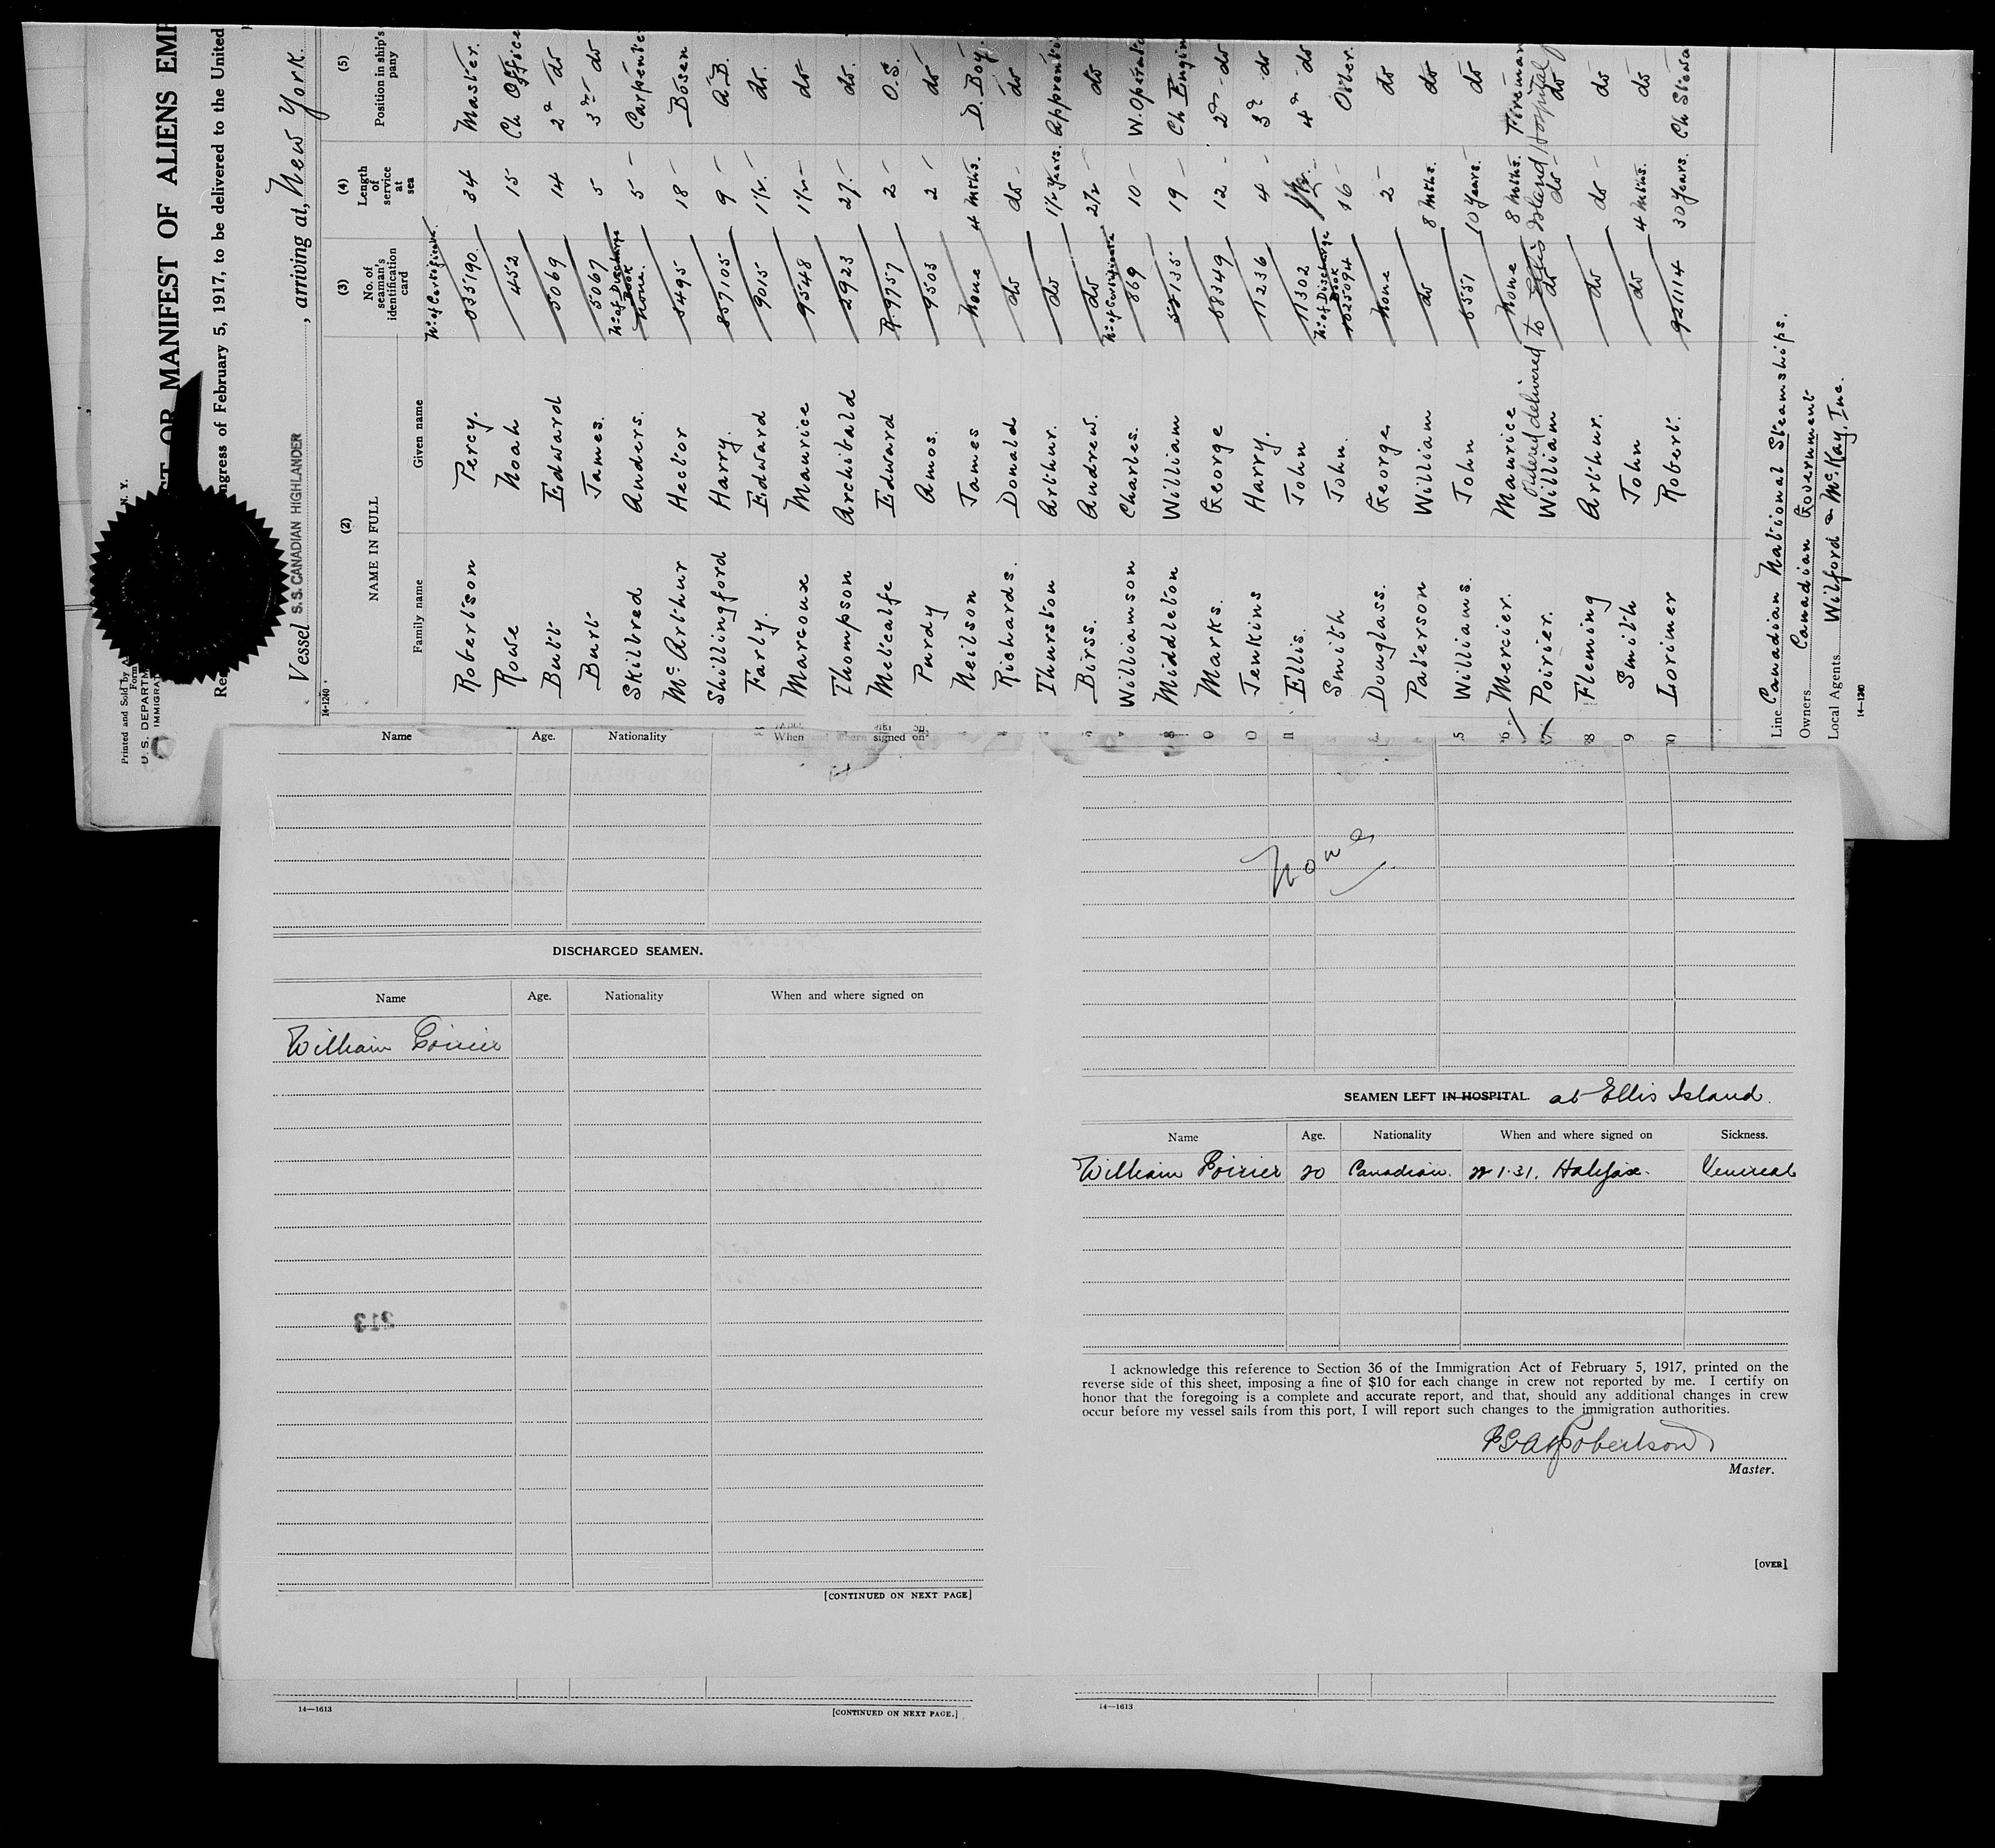 Printed and Sold by
N. Y.
Form
U. S. DEPARTM
IMMIGRAT
OR MANIFEST OF ALIENS EMP
ngress of February 5, 1917, to be delivered to the United
Vessel S. S. CANADIAN HIGHLANDER, arriving at, New York.
14-1240
(2) (3) (4) (5)
NAME IN FULL No. of seaman's identification card Length of service at sea Position in ship's pany
Family name Given name
No of Certificate.
Robertson Percy. 035190. 34 Master.
Rowe Noah 452 15 Ch Office
Butt Edward 5069 14 2nd do
Burt James. 5067 5 3rd do
No of Discharge Book
Skilbred Anders. none. 5 Carpente
McArthur Hector 5495 18 Bosen
Shillingford Harry. 857105 9 A.B.
Farly. Edward 9015 1 1/2. do.
Marcoux Maurice 9548 1 1/2 do
Thompson Archibald 2923 do.
Metcalfe Edward R.9757 2 O.S.
Purdy Amos. 9503 2 do
Neilson James none 4 mths. D. Boy.
Richards. Donald do do do
Thurston Arthur. do 1 1/2 years. Apprenti
Birss. Andrew. do 2 1/2 do
No of Certificate
Williamson Charles. 869 10 W. Operato
Middleton William 19 Ch Engin
Marks. George 68349 12 2nd do
Jenkins Harry. 11236 4 3rd do
Ellis. John 11302 4th do
No of Discharge Book
Smith John. 1025094 16 Oiler.
Douglass. George none 2 do
Paterson William do 8 mths. do
Williams. John 6551 10 years. do
Mercier. Maurice none 8 mths. Fireman
Ordered delivered to Ellis Island Hospital
Poirier. William do do do
Fleming Arthur. do do do
Smith John do 4 mths. do
Lorimer Robert. 921114 30 years. Ch Stewa
Line Canadian National Steamships.
Owners Canadian Government
Local Agents Wilford & McKay, Inc.
14-1240
Name Age. Nationality When and where signed on
DISCHARGED SEAMEN.
Name Age. Nationality When and where signed on
William Poirier
213
[CONTINUED ON NEXT PAGE]
None
SEAMEN LEFT IN HOSPITAL. at Ellis Island.
Name Age. Nationality When and where signed on Sickness.
William Poirier 20 Canadian. 22·1·31. Halifax. Venereal
I acknowledge this reference to Section 36 of the Immigration Act of February 5, 1917, printed on the
reverse side of this sheet, imposing a fine of $10 for each change in crew not reported by me. I certify on
honor that the foregoing is a complete and accurate report, and that, should any additional changes in crew
occur before my vessel sails from this port, I will report such changes to the immigration authorities.
Robertson
Master.
[OVER]
14—1613 [CONTINUED ON NEXT PAGE.] 14—1613